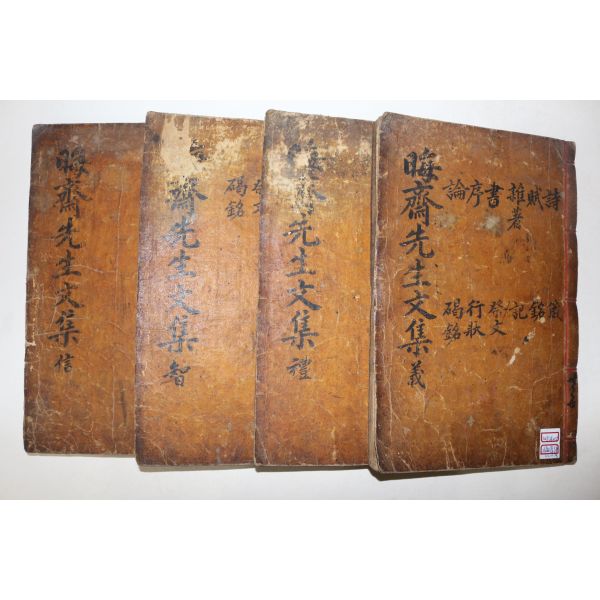 晦齋先生文集 義
詩 箴
賦 銘
雜著 記
書 祭文
序 行狀
論 碣銘
晦齋先生文集 禮
齋先生文集 智
祭文
碣銘
晦齋先生文集 信